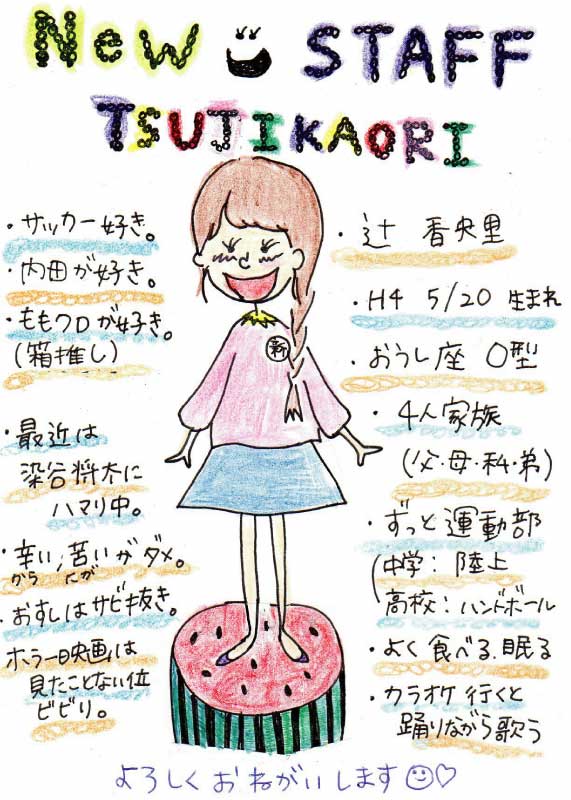 New STAFF
TSUJIKAORI
・サッカー好き。
・内田が好き。
・ももクロが好き。
(箱推し)
・最近は
染谷将太に
ハマり中。
・辛い、苦いがダメ。
から にが
・おすしはサビ抜き。
ホラー映画は
見たことない位
ビビり。
・辻 香央里
・H4 5/20 生まれ
・おうし座 O型
・4人家族
(父・母・私・弟)
・ずっと運動部
(中学:陸上
高校:ハンドボール
・よく食べる、眠る
・カラオケ行くと
踊りながら歌う
新
よろしくおねがいします